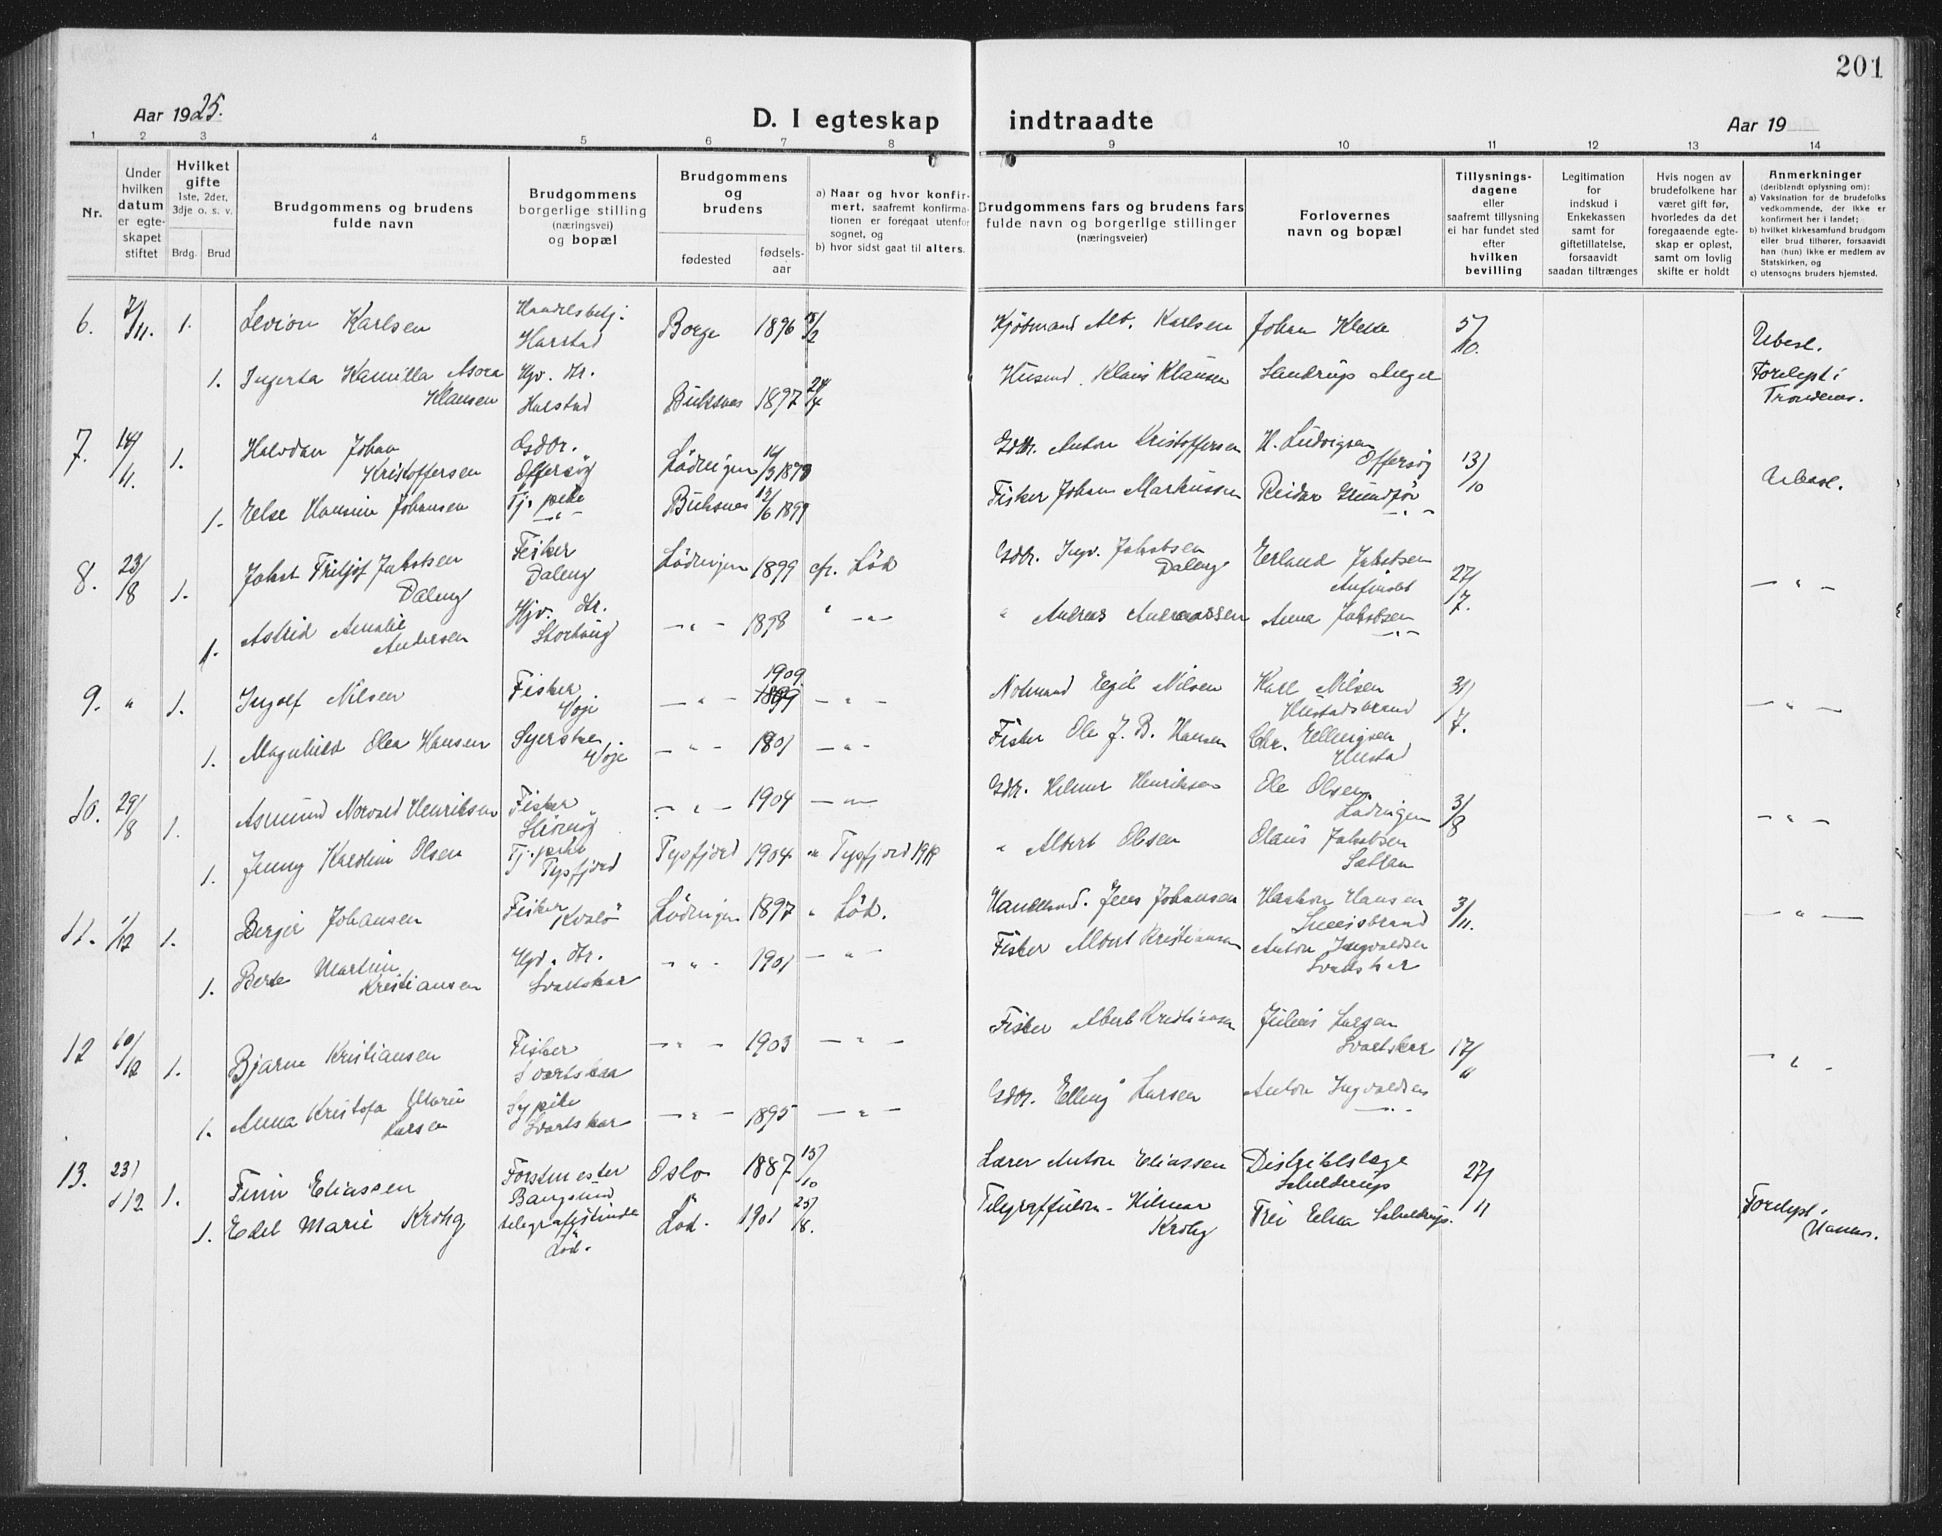 201
Aar 1925.
D. I egteskap indtraadte
Aar 19
1 2 3 4 5 6 7 8 9 10 11 12 13 14
Nr.
Under
hvilken
datum
er egte-
skapet
stiftet
Hvilket
gifte
1ste, 2det,
3dje o. s. v.
Brdg. Brud
Brudgommens og brudens
fulde navn
Brudgommens
borgerlige stilling
(næringsvei)
og bopæl
Brudgommens
og
brudens
fødested
fødsels-
aar
a) Naar og hvor konfir-
mert, saafremt konfirma-
tionen er foregaat utenfor
sognet, og
b) hvor sidst gaat til alters.
Brudgommens fars og brudens fars
fulde navn og borgerlige stillinger
(næringsveier)
Forlovernes
navn og bopæl
Tillysnings-
dagene
eller
saafremt tillysning
ei har fundet sted
efter
hvilken
bevilling
Legitimation
for
indskud i
Enkekassen
samt for
giftetillatelse,
forsaavidt
saadan tiltrænges
Hvis nogen av
brudefolkene har
været gift før,
hvorledes da det
foregaaende egte-
skap er opløst,
samt om lovlig
skifte er holdt
Anmerkninger
(deriblandt oplysning om):
a) Vaksination for de brudefolks
vedkommende, der ikke er
konfirmert her i landet;
b) hvilket kirkesamfund brudgom
eller brud tilhører, forsaavidt
han (hun) ikke er medlem av
Statskirken, og
c) utensogns bruders hjemsted.
6. 7/11. 1. Levion Karlsen Handelsbetj. Harstad Borge 1896 Kjøbmand Alb. Karlsen Johan Klette 5/10. Ubesl.
1. Ingerta Kamilla Asora Klausen Hgv. dtr. Harstad Buksnes 1897 24/4 Husmd. Klaus Klausen Sandrup Forelyst i Trondenes.
7. 14/11. 1. Halvdan Johan Kristoffersen Gdbr. Offersøy Lødingen 14/3 1878 Gdbr. Anton Kristoffersen H. Ludvigsen Offersøy 13/10 Ubesl.
1. Else Hansine Johansen Tj. pike - " - Buksnes 12/6 1899 Fisker Johan Markussen Reidar Grundfør - " -
8. 23/8 1. Jakob Fritjof Jakobsen Daleng Fisker Daleng Lødingen 1899 cfr. Lød Gdbr. Ingv. Jakobsen Daleng Erland Jakobsen 27/7. - " -
1. Astrid Amalie Andersen Hgv. dtr. - " - 1898 " - " - " Andreas Andreassen Anna Jakobsen - " -
9. " 1. Ingolf Nilsen Fisker Voje - " - 1909 1899 - " - Notmand Egil Nilsen Karl Nilsen Hustadstrand 31/7. - " -
1. Magnhild Olea Hansen Syerske Voje - " - 1901 - " - Fisker Ole J. B. Hansen Chr. Ellingsen Hustad
10. 29/8 1. Asmund Norvald Henriksen Fisker - " - 1904 - " - Gdbr. Hilmar Henriksen Ole Olsen Lødingen 3/8 - " -
1. Jenny Karoline Olsen Tj. pike Tysfjord Tysfjord 1904 " Tysfjord 1919 " Albert Olsen Olaus Jakobsen Sættran
11. 1/12 1. Berger Johansen Fisker Kvalø Lødingen 1897 " Lød. Handelsmd. Jens Johansen Haakon Hansen 3/11. - " -
1. Berte Martine Kristiansen Hgv. dtr. Svartskar - " - 1901 - " - Fisker Albert Kristiansen Anton Ingvaldsen Svartskar
12 10/12 1. Bjarne Kristiansen Fisker Svartskar - " - 1903 - " - Fisker Albert Kristiansen Julius Larsen Svartskar 17/11 - " -
1. Anna Kristofa Marie Larsen Sypike Svartskar - " - 1895 - " - Gdbr. Elling Larsen Anton Ingvaldsen - " -
13. 23/12 1. Finn Eliassen Forstmester Bangsund Oslo 1887 15/10 Lærer Anton Eliassen Distriktslæge Schelderup 27/11
1. Edel Marie Krohg telegrafistinde Lød. Lød. 1901 25/8. Hilmar Krohg Elna Schelderup. Forelyst i Namsos.